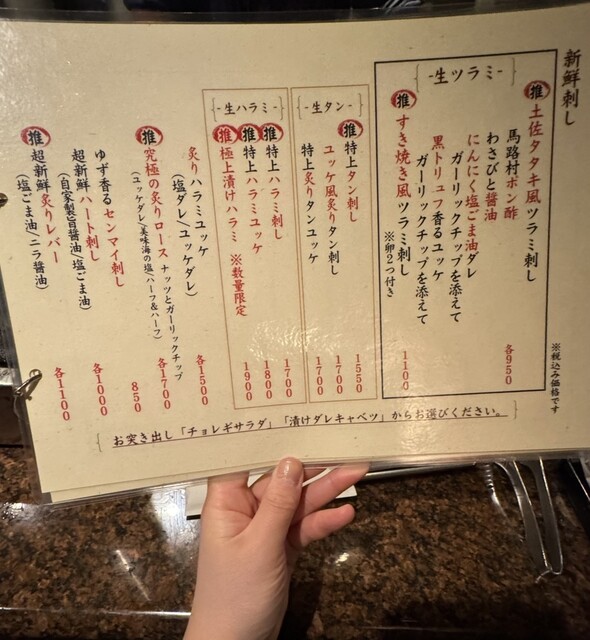 新鮮刺し
※税込み価格です
-生ツラミ-
推 土佐タタキ風ツラミ刺し
馬路村ポン酢
わさびと醤油
にんにく塩ごま油ダレ
ガーリックチップを添えて
黒トリュフ香るユッケ
ガーリックチップを添えて
各950
推 すき焼き風ツラミ刺し
※卵2つ付き
1100
-生タン-
推 特上タン刺し
1550
ユッケ風炙りタン刺し
1700
特上炙りタンユッケ
1700
-生ハラミ-
推 特上ハラミ刺し
1700
推 特上ハラミユッケ
1800
推 極上漬けハラミ ※数量限定
1900
炙りハラミユッケ
(塩ダレ/ユッケダレ)
各1500
推 究極の炙りロース ナッツとガーリックチップ
(ユッケダレ/美味海の塩/ハーフ&ハーフ)
各1700
ゆず香るセンマイ刺し
850
超新鮮ハート刺し
(自家製旨醤油/塩ごま油)
各1000
推 超新鮮炙りレバー
(塩ごま油/ニラ醤油)
各1100
お突き出し「チョレギサラダ」「漬けダレキャベツ」からお選びください。